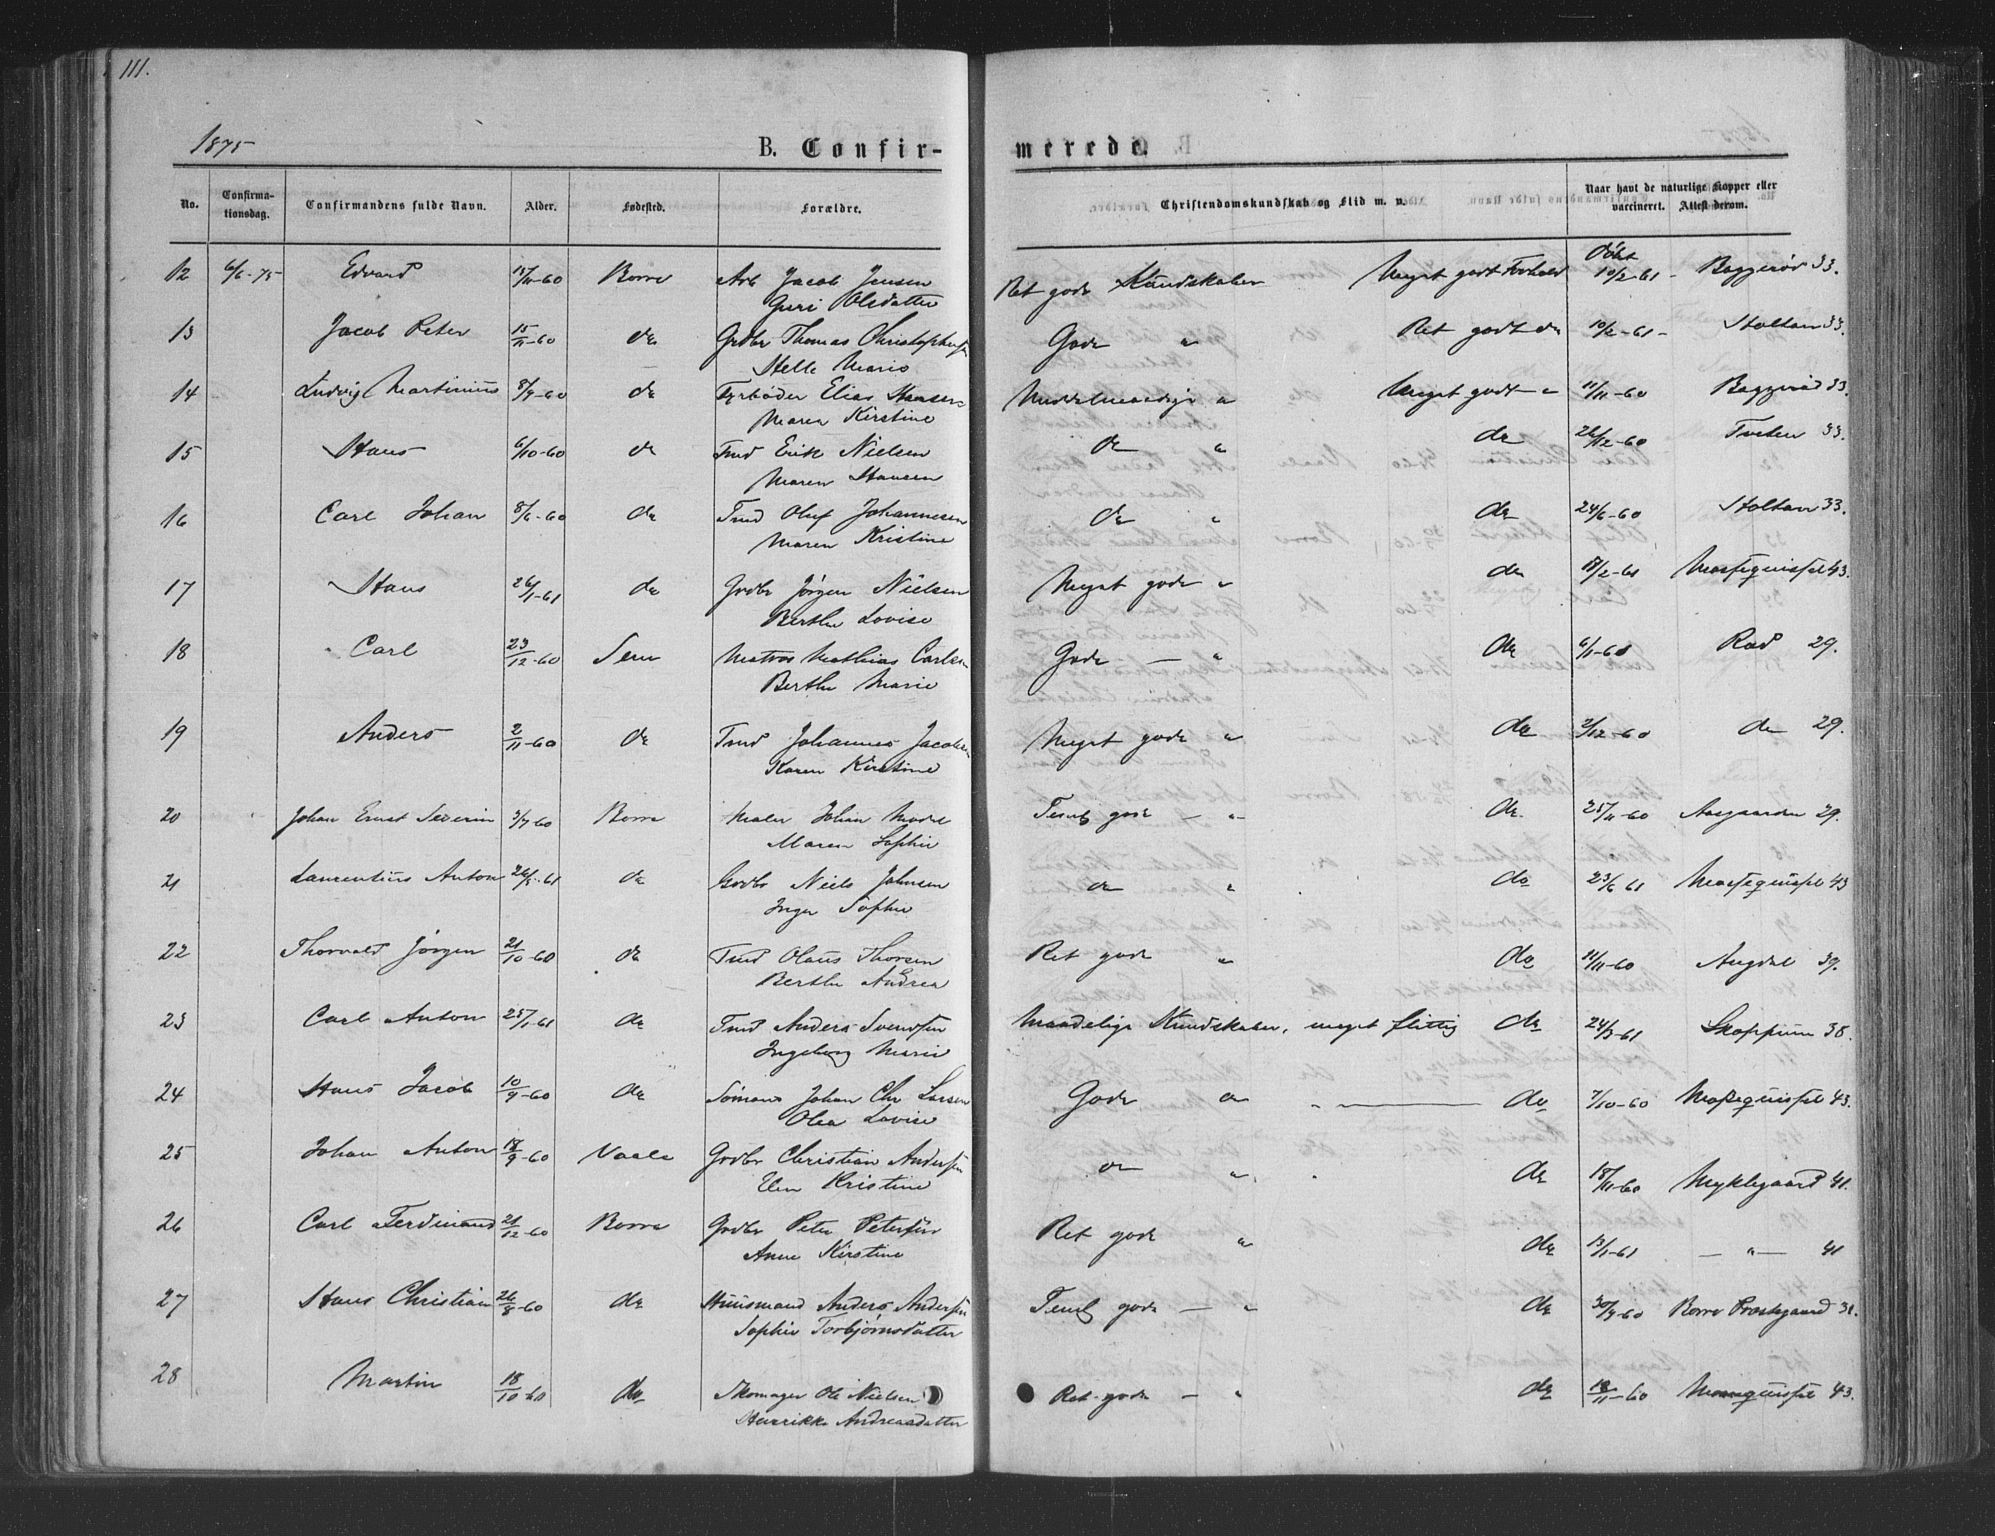 111.
1875
B. Confir-
merede.
No.
Confirma-
tionsdag.
Confirmandens fulde Navn.
Alder.
Fødested.
Forældre.
Christendomskundskab og Flid m. v.
Naar havt de naturlige Kopper eller
vaccineret. Attest derom.
12 6/6-75 Edvard 15/11-60 Borre Arb Jacob Jensen Ret gode Kundskaber Meget godt Forhold Døbt 10/2-61- Baggerød 33.
Guri Olsdatter
13 Jacob Peter 15/11-60 do Grdbr Thomas Christophersen Gode " Ret godt do 10/2-61- Holtan 33.
Helle Marie
14 Ludvig Martinius 8/9-60 do Fyrbøder Elias Hansen Middelmaadige " Meget godt " 11/11-60 Baggerød 33.
Maren Kirstine
15 Hans 6/10-60 do Tmd Erik Nielsen do " do 26/12-60 Tveten 33.
Maren Hansen
16 Carl Johan 8/6-60 do Tmd Oluf Johannesen do " do 24/6-60 Holtan 33.
Maren Kristine
17 Hans 26/1-61 do Grdbr Jørgen Nielsen Meget gode " do 17/2-61 43.
Berthe Lovise
18 Carl 23/12-60 Sem Matros Mathias Carlsen Gode — " do 6/1-60 Rød 29.
Berthe Marie
19 Anders 2/11-60 do Tmd Johannes Jacobsen Meget gode " do 2/12-60 do 29.
Karen Kirstine
20 Johan Ernst Severin 3/7-60 Borre Maler Johan Temlg gode — " do. 25/11-60 Aasgaarden 29.
Maren Sophie
21 Laurentius Anton 26/5-61 do Grdbr Niels Johnsen do " do 23/6 61 43
Inger Sophie
22 Thorvald Jørgen 21/10-60 do Tmd Olaus Thorsen Ret gode " do 11/11-60 Augdal 39.
Berthe Andrea
23 Carl Anton 25/1-61 do Tmd Anders Svendsen Maadelige Kundskaber, meget flittig do 24/3-61 Skoppum 38.
Ingeborg Marie
24 Hans Jacob 10/9-60 do Sømand Johan Chr Larsen Gode " " — do 7/10-60 43.
Olea Lovise
25 Johan Anton 18/9-60 Vaale Grdbr Christian Andersen do " do 18/11-60 Myklegaard 41.
Elen Kristine
26 Carl Ferdinand 21/12-60 Borre Grdbr Peter Petersen Ret gode " do 13/1-61 — " — 41
Anne Kirstine
27 Hans Christian 26/8-60 do Huusmand Anders Andersen Temlg gode — " do 30/9-60 Borre Præstegaard 31.
Sophie Torbjørnsdatter
28 Martin 18/10-60 do Skomager Ole Nielsen Ret gode — " do 18/11-60 43.
Henrikke Andreasdatter